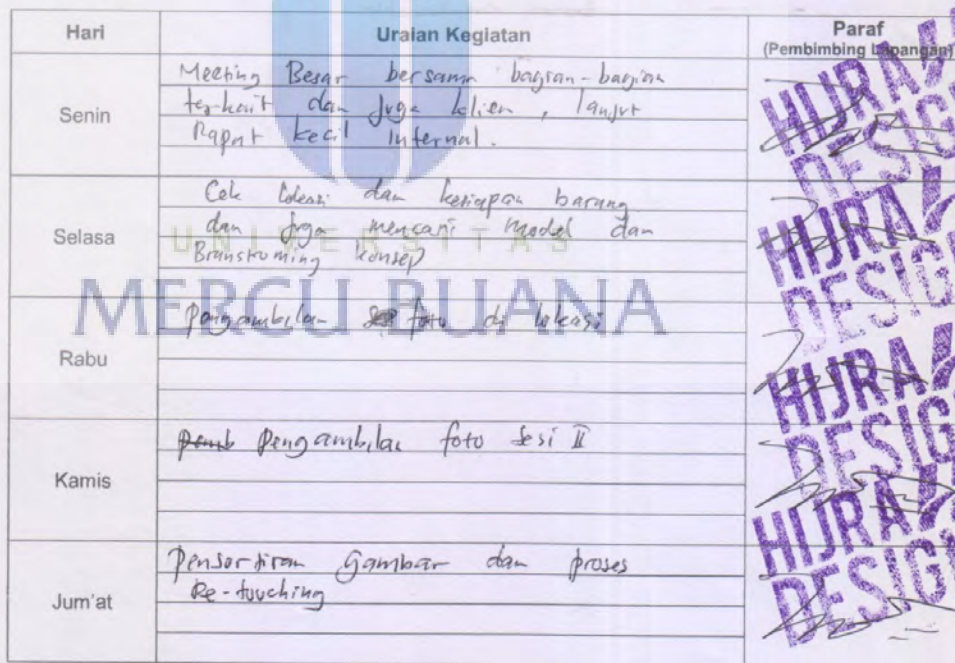 Hari Uraian Kegiatan Paraf
(Pembimbing Lapangan)
Senin
Meeting Besar bersama bagian-bagian
terkait dan juga klien, lanjut
Rapat kecil internal.
HIJRAH
DESIGN
Selasa
Cek lokasi dan kesiapan barang
dan juga mencari model dan
Branstroming konsep
HIJRAH
DESIGN
UNIVERSITAS
MERCU BUANA
Rabu
Pengambilan foto di lokasi
HIJRAH
DESIGN
Kamis
Pengambilan foto Sesi II
HIJRAH
DESIGN
Jum'at
Pensortiran Gambar dan proses
Re-touching